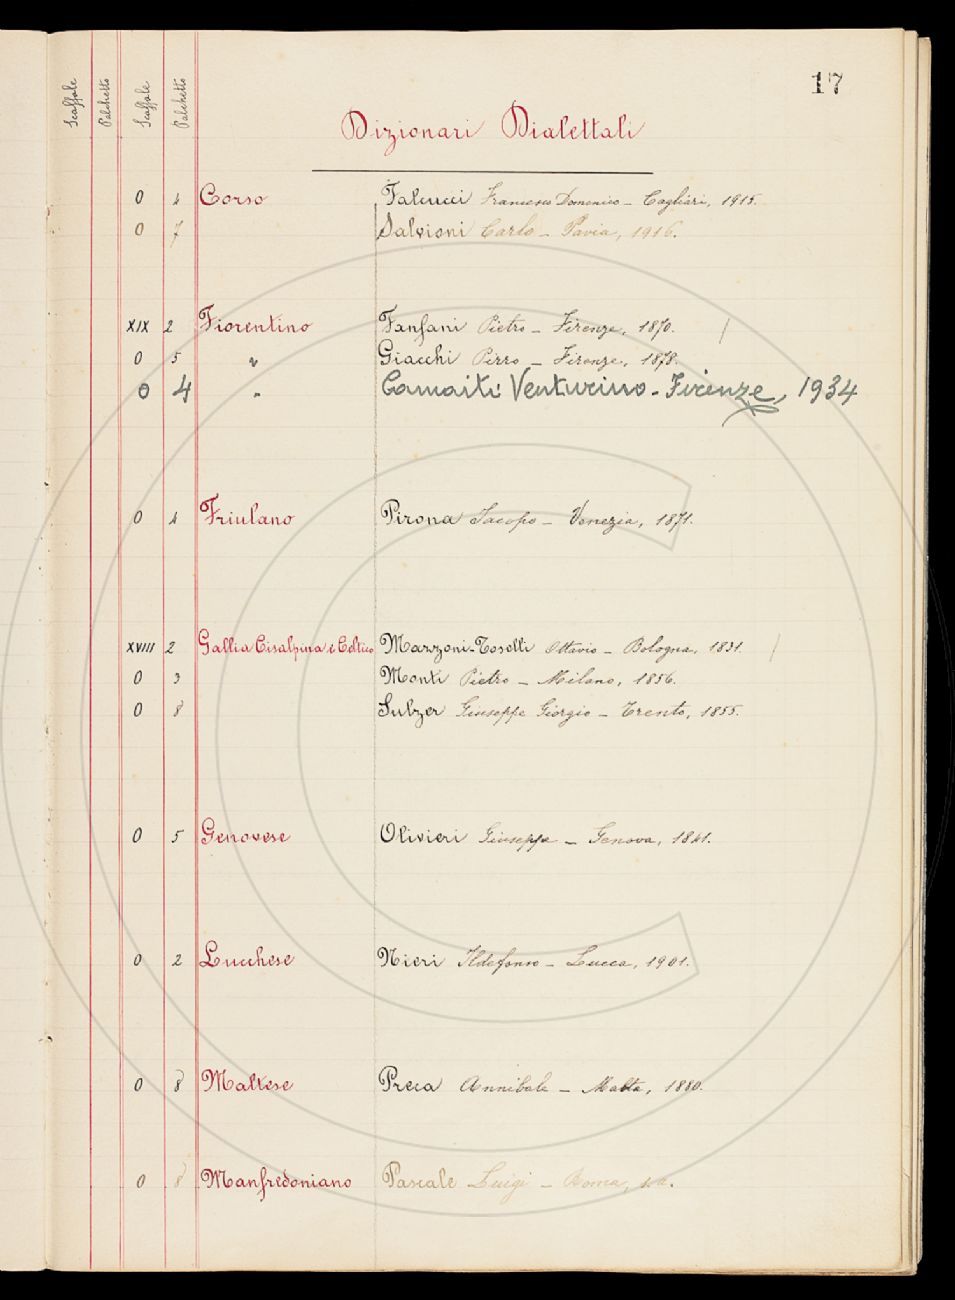 17
Scaffale Palchetto Scaffale Palchetto
Dizionari Dialettali
0 4 Corso Falcucci Francesco Domenico - Cagliari, 1915.
0 7 Salvioni Carlo - Pavia, 1916.
XIX 2 Fiorentino Fanfani Pietro - Firenze, 1870. /
0 5 " Giacchi Pirro - Firenze, 1878.
0 4 " Camaiti Venturino - Firenze, 1934
0 4 Friulano Pirona Jacopo - Venezia, 1871.
XVIII 2 Gallia Cisalpina è Celtico Mazzoni-Toselli Ottavio - Bologna, 1831. /
0 3 Monti Pietro - Milano, 1856.
0 8 Sulzer Giuseppe Giorgio - Trento, 1855.
0 5 Genovese Olivieri Giuseppe - Genova, 1841.
0 2 Lucchese Nieri Ildefonso - Lucca, 1901.
0 8 Maltese Preca Annibale - Malta, 1880.
0 8 Manfredoniano Pascale Luigi - Roma, s.a.